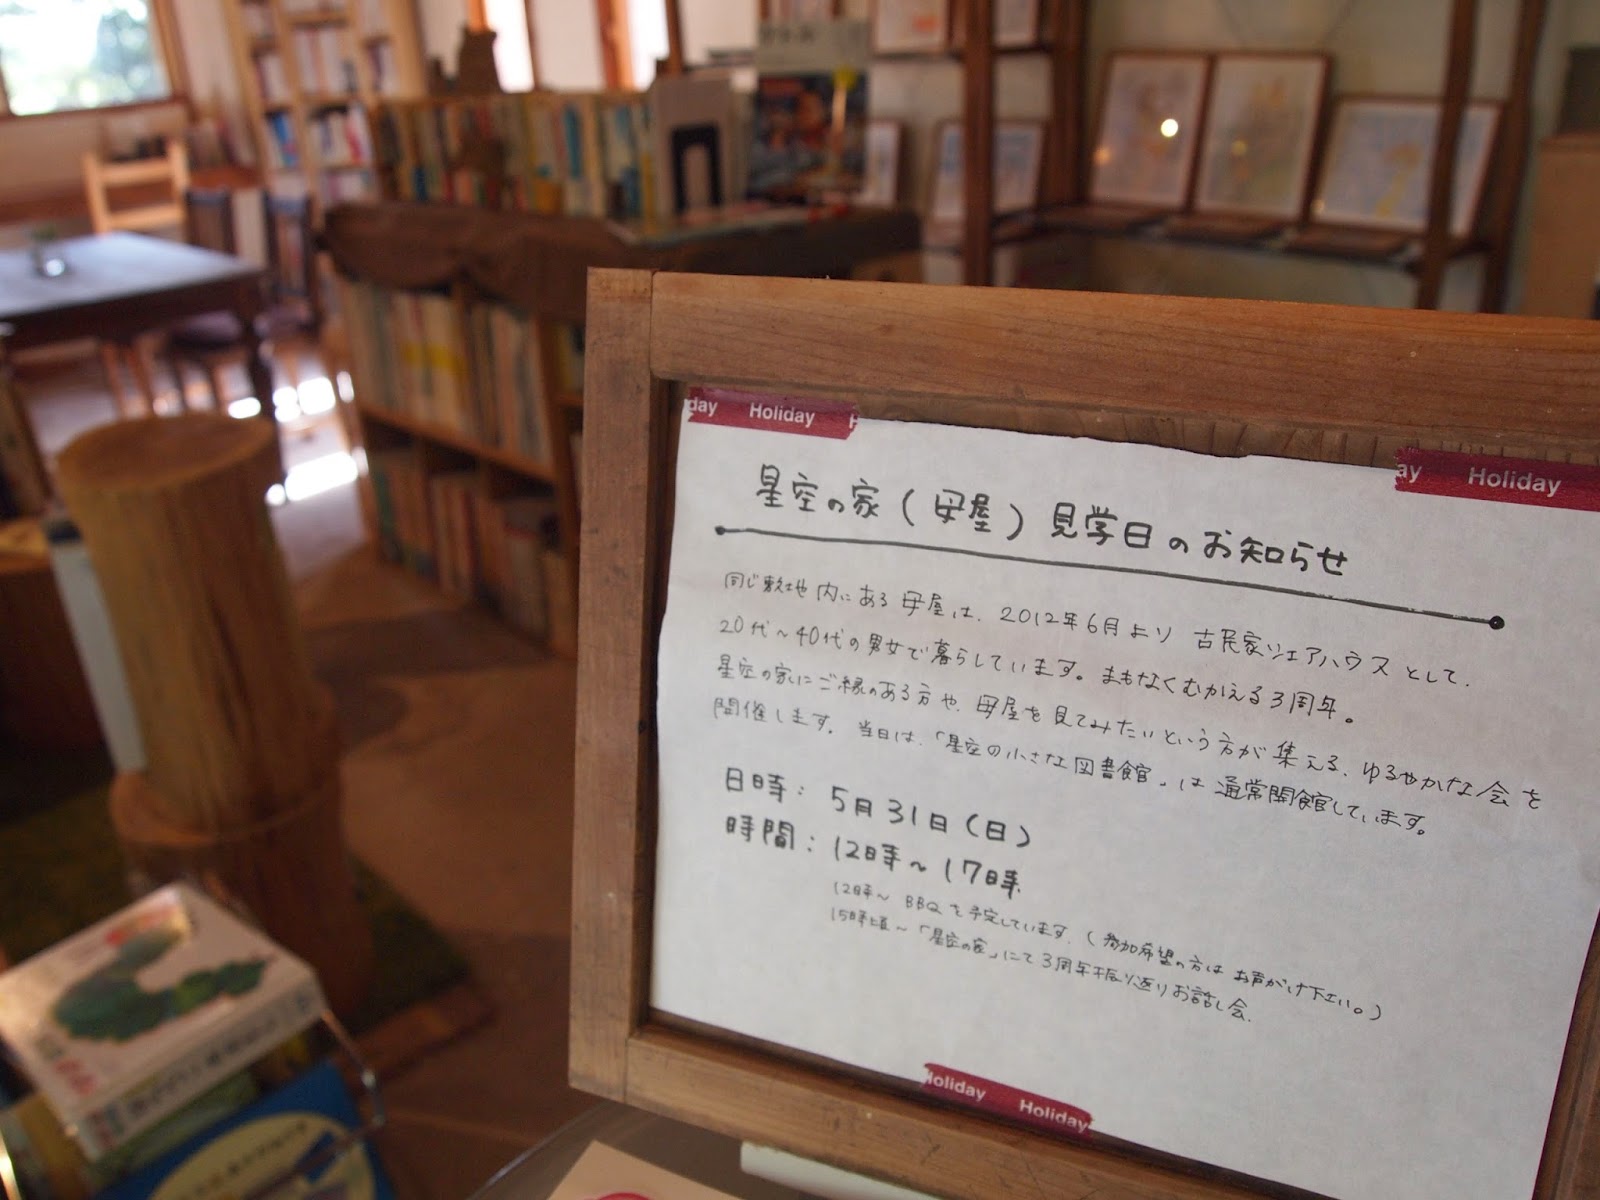 day Holiday H
ay Holiday
星空の家(母屋)見学日のお知らせ
同じ敷地内にある母屋は、2012年6月より 古民家シェアハウスとして、
20代〜40代の男女で暮らしています。まもなくむかえる3周年。
星空の家にご縁のある方や、母屋を見てみたいという方が集える、ゆるやかな会を
開催します。当日は、「星空の小さな図書館」は通常開館しています。
日時: 5月31日(日)
時間: 12時〜17時
12時〜 BBQを予定しています。(参加希望の方はお声がけ下さい。)
15時頃〜「星空の家」にて3周年振り返りお話し会.
Holiday Holiday